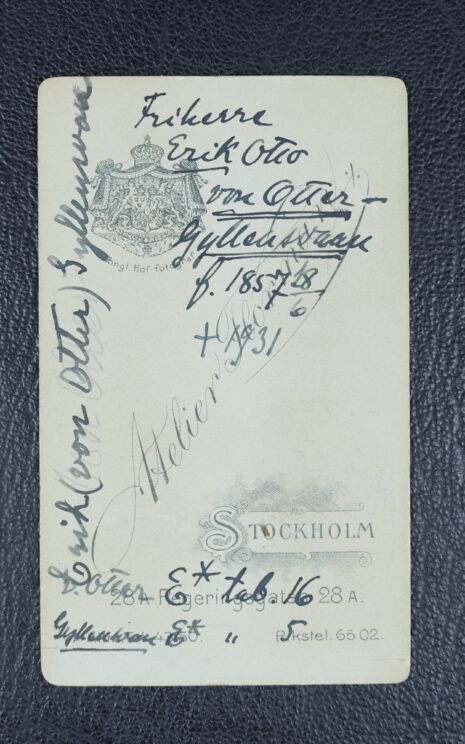 Friherre
Erik Otto
von Otter-
Gyllensvaan
f. 1857 28/6
† 1931
Erik (von Otter) Gyllensvaan
Kongl. Hof-fotograf
Atelier
STOCKHOLM
28 A Regeringsgatan 28 A.
v. Otter E* tab. 16
Gyllensvan E* " 5
Rikstel. 65 02.